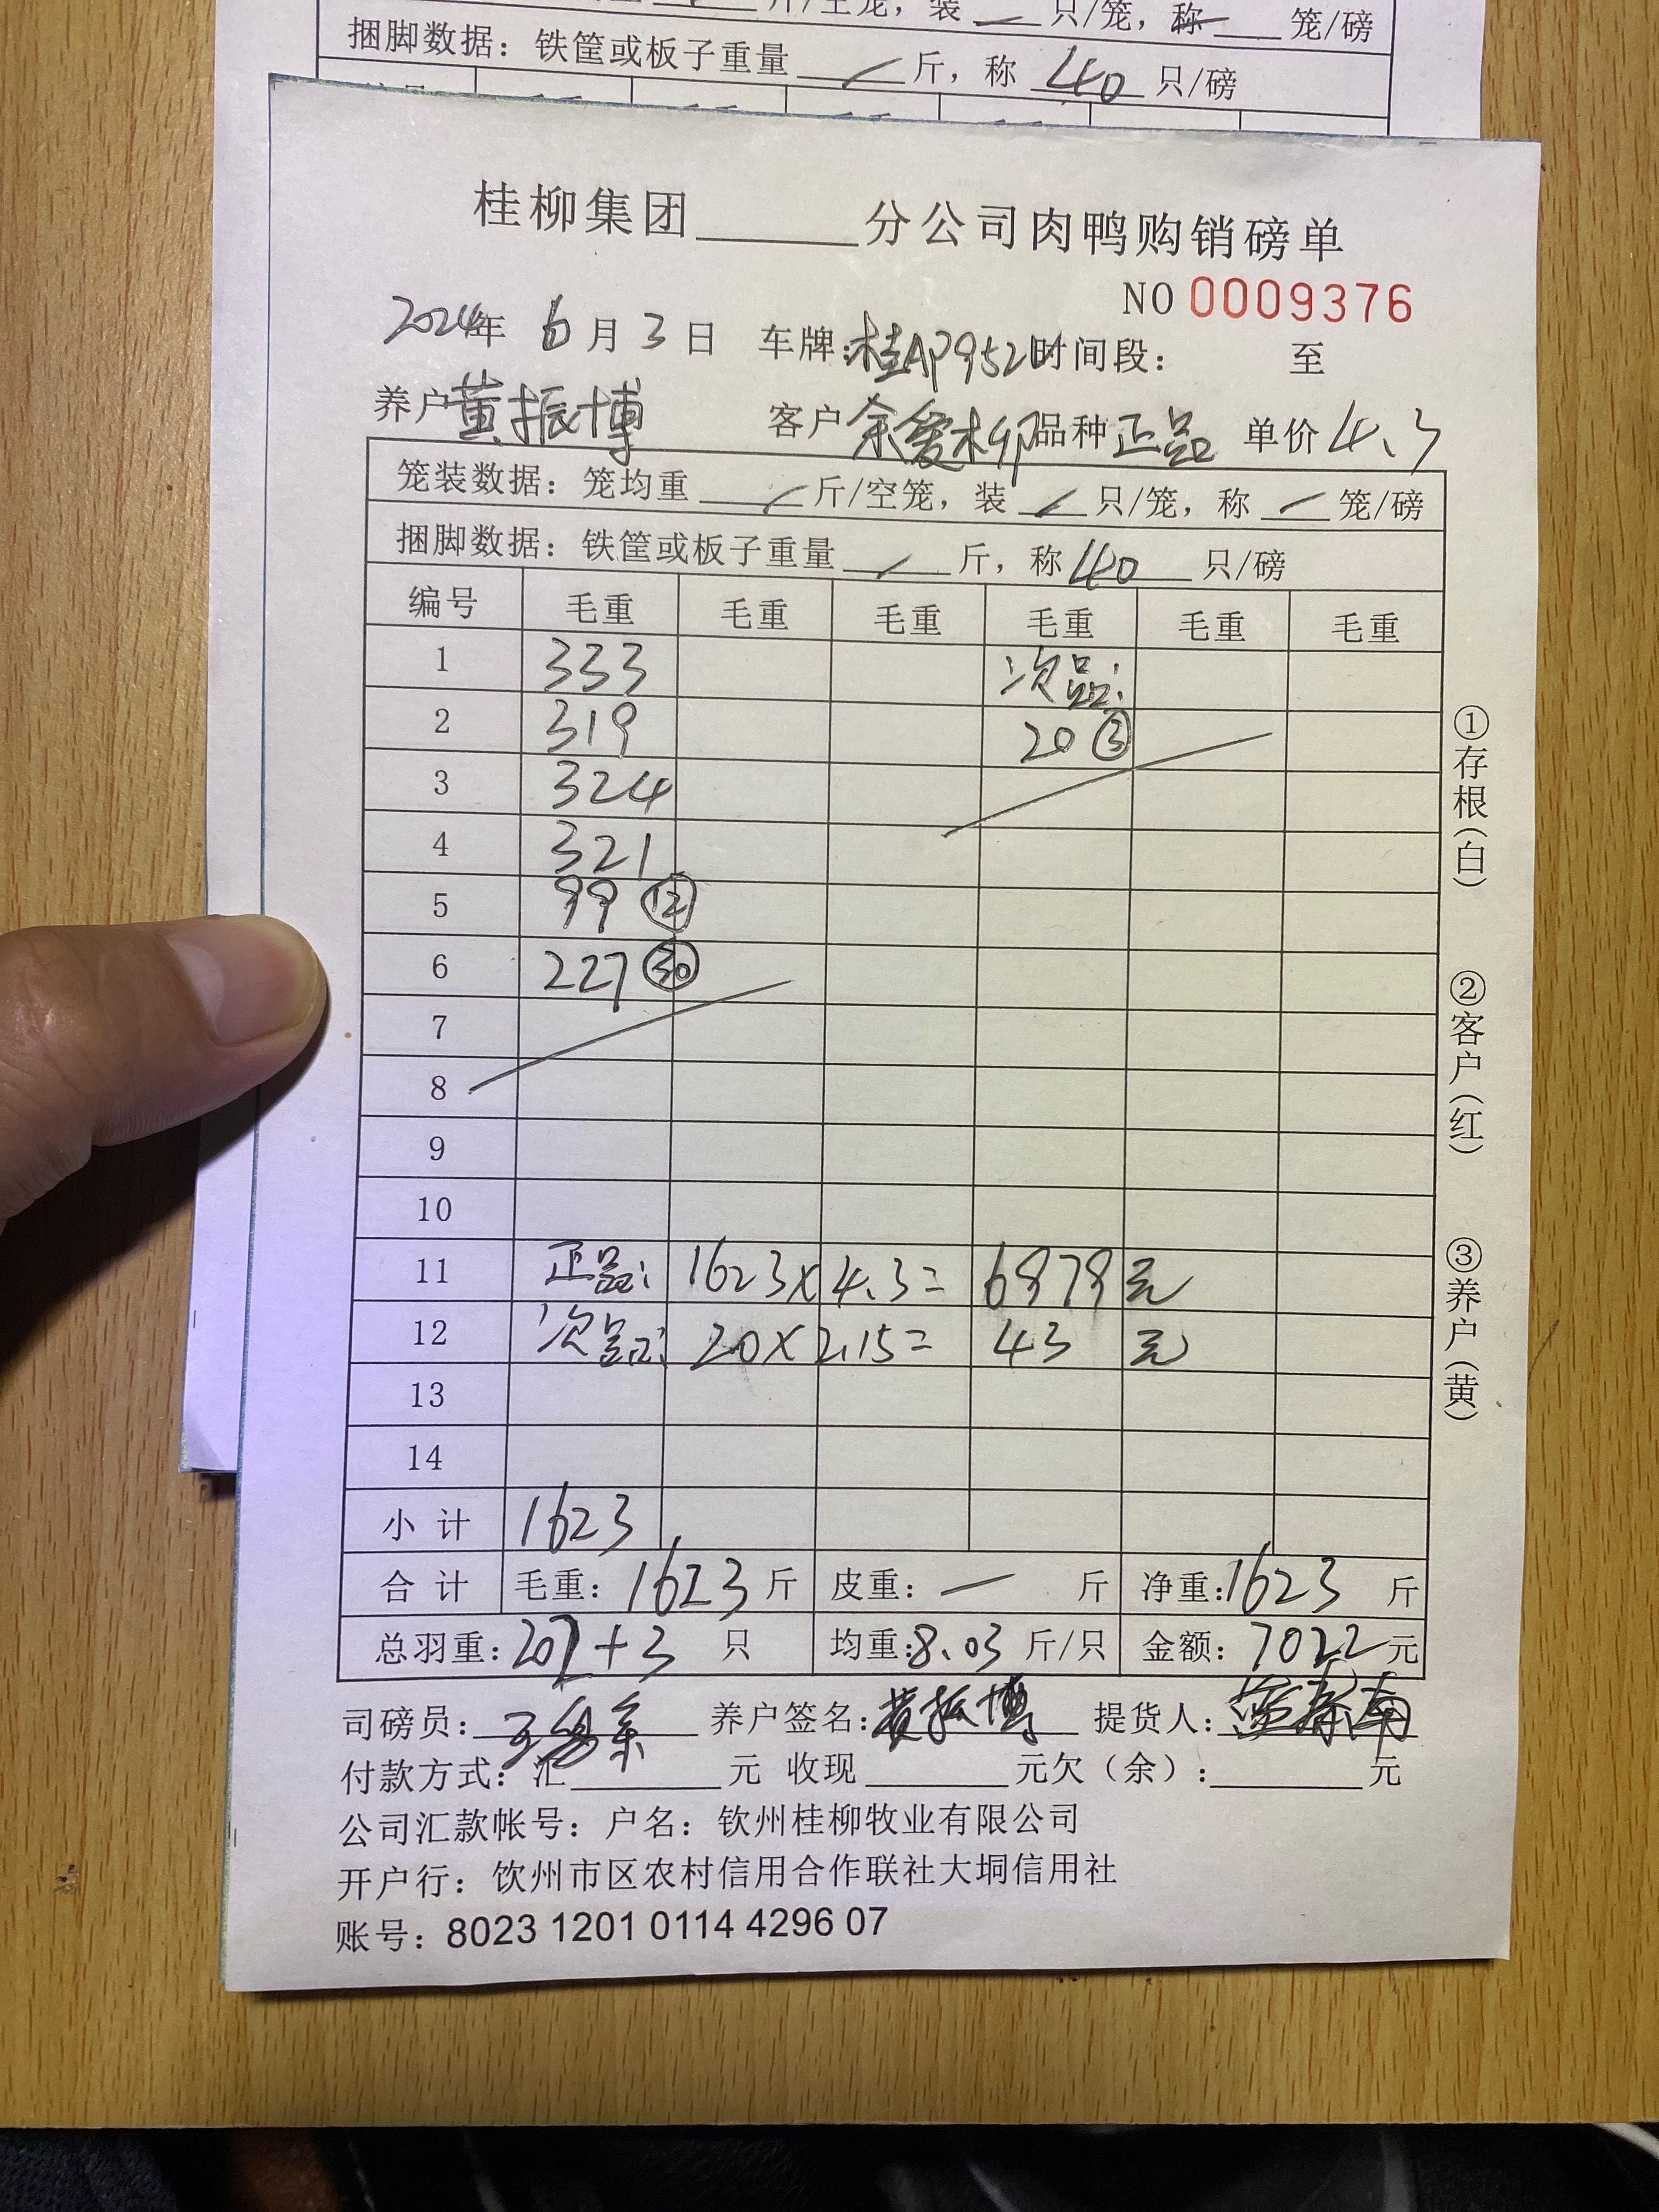 斤/空笼，装 只/笼，称 笼/磅
捆脚数据：铁筐或板子重量 / 斤，称 40 只/磅
桂柳集团 分公司肉鸭购销磅单
NO 0009376
2024年 6月 3日 车牌： 时间段： 至
养户 黄振博 客户 余爱柳 品种 正品 单价 4.3
笼装数据：笼均重 / 斤/空笼，装 / 只/笼，称 / 笼/磅
捆脚数据：铁筐或板子重量 / 斤，称 40 只/磅
编号 毛重 毛重 毛重 毛重 毛重 毛重
1 333 次品：
2 319 20 ③
3 324
4 321
5 99 ⑫
6 227 ㉚
7
8
9
10
11 正品： 1623× 4.3= 6979 元
12 次品： 20× 2.15= 43 元
13
14
小计 1623
合计 毛重：1623 斤 皮重：— 斤 净重：1623 斤
总羽重：202+3 只 均重：8.03 斤/只 金额：7022 元
司磅员： 养户签名：黄振博 提货人：
付款方式：汇 元 收现 元欠（余）： 元
公司汇款帐号：户名：钦州桂柳牧业有限公司
开户行：饮州市区农村信用合作联社大垌信用社
账号：8023 1201 0114 4296 07
①存根（白）
②客户（红）
③养户（黄）